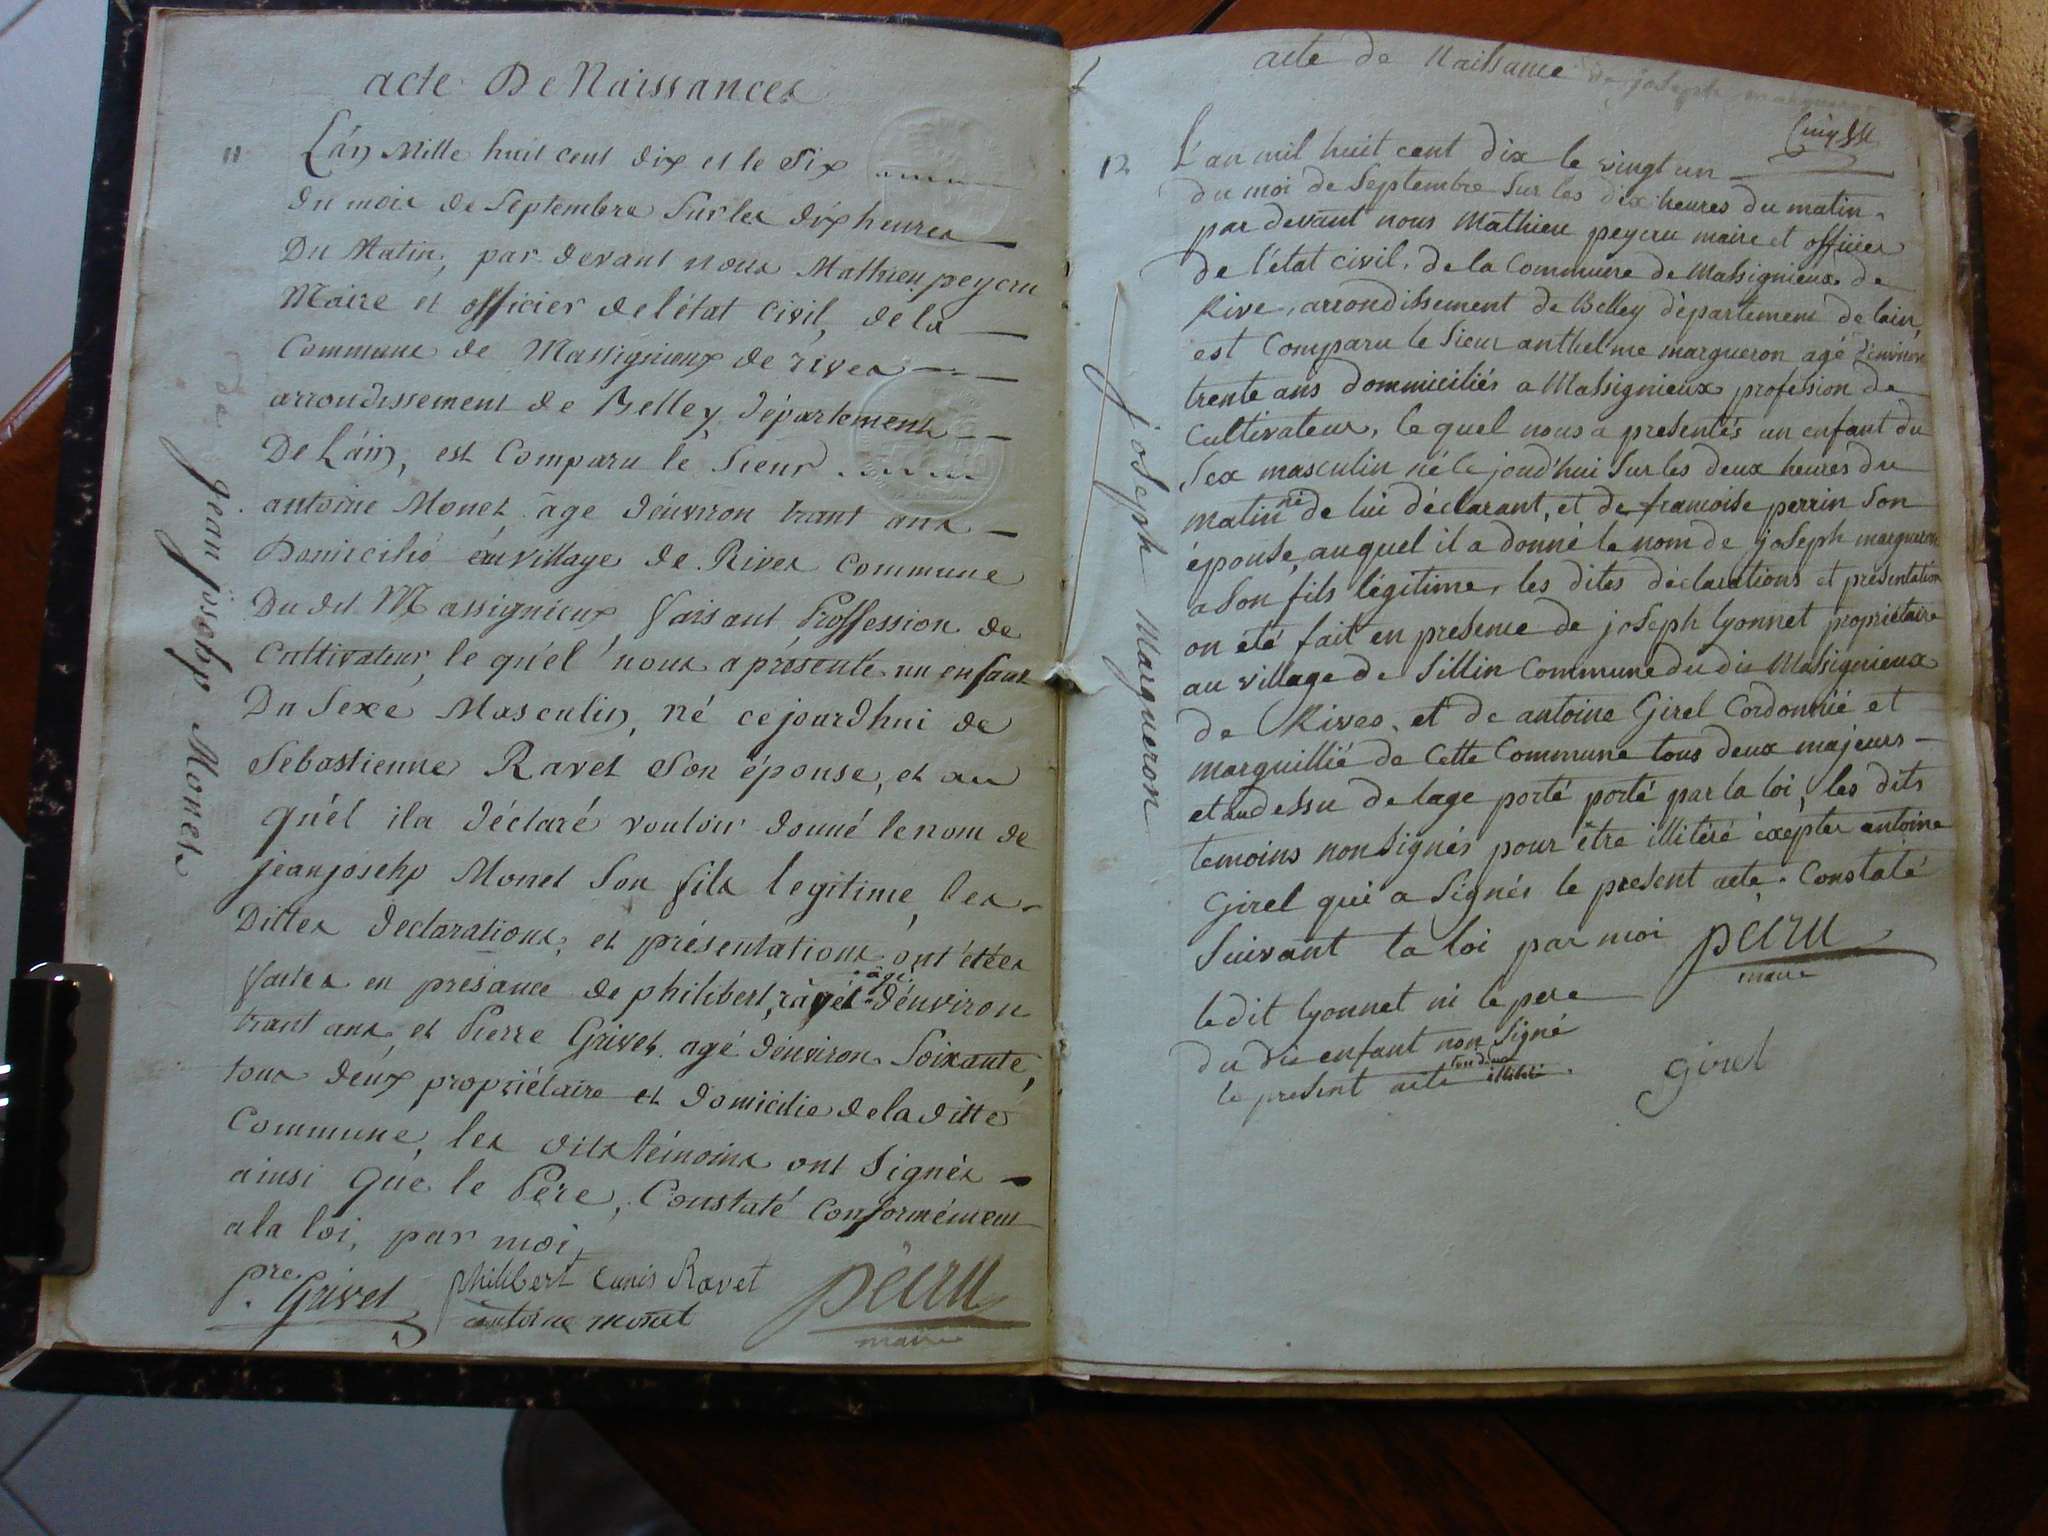 acte De Naissances
11
L'an Mille huit cent dix et le Six
du mois de Septembre Sur les dix heures
Du Matin, par devant nous Mathieu peycru
Maire et officier de l'état Civil, de la
Commune de Massignieux de rives
arrondissement de Belley, département
De L'ain, est Comparu le Sieur
antoine Monet, âge d'environ trant ans
Domicilié au village de Rives Commune
Du dit Massignieux, faisant Proffession de
Cultivateur, le qu'el nous a présenté un enfant
Du Sexe Masculin, né ce jourdhui de
Sebastienne Ravet Son épouse, et au
qu'el il a déclaré vouloir donné le nom de
jean josehp Monet Son fils legitime, les
Dittes déclarations, et présentations ont étées
faites en présance de philibert ravet âgé d'environ
trant ans, et Pierre Grivet agé d'environ Soixante,
tous deux propriétaire et domicilie de la ditte
Commune, les dits témoins ont Signés
ainsi que le Pére, Constaté Conformément
a la loi, par moi,
pre Grivet
philibert Ravet
antoine monet
pécru
maire
de jean josehp Monet
acte de Naissance de joseph margueron
12
L'an mil huit cent dix le vingt un
du moi de Septembre Sur les dix heures du matin
par devant nous Mathieu peycru maire et officier
de l'état civil, de la Commune de Massignieux de
Rive, arrondissement de Belley département de lain,
est Comparu le Sieur anthelme margueron agé d'environ
trente ans dommiciliés a Massignieux profession de
Cultivateur, le quel nous a presentés un enfant du
Sex masculin né le jourd'hui Sur les deux heures du
matin né de lui déclarant, et de francoise perrin Son
épouse, auquel il a donné le nom de joseph margueron
a Son fils légitime, les dites déclarations et présentation
on été fait en presence de joseph lyonnet propriétaire
au village de Sillin Commune du dit Massignieux
de Rives, et de antoine Girel Cordonnié et
marguillié de Cette Commune tous deux majeurs
et au dessu de lage porté porté par la loi, les dits
temoins non Signés pour être illitéré éxepter antoine
Girel qui a Signés le présent acte. Constaté
Suivant la loi par moi pécru
maire
le dit lyonnet ni le pere
du dit enfant non Signé
le present acte
girel
joseph Margueron